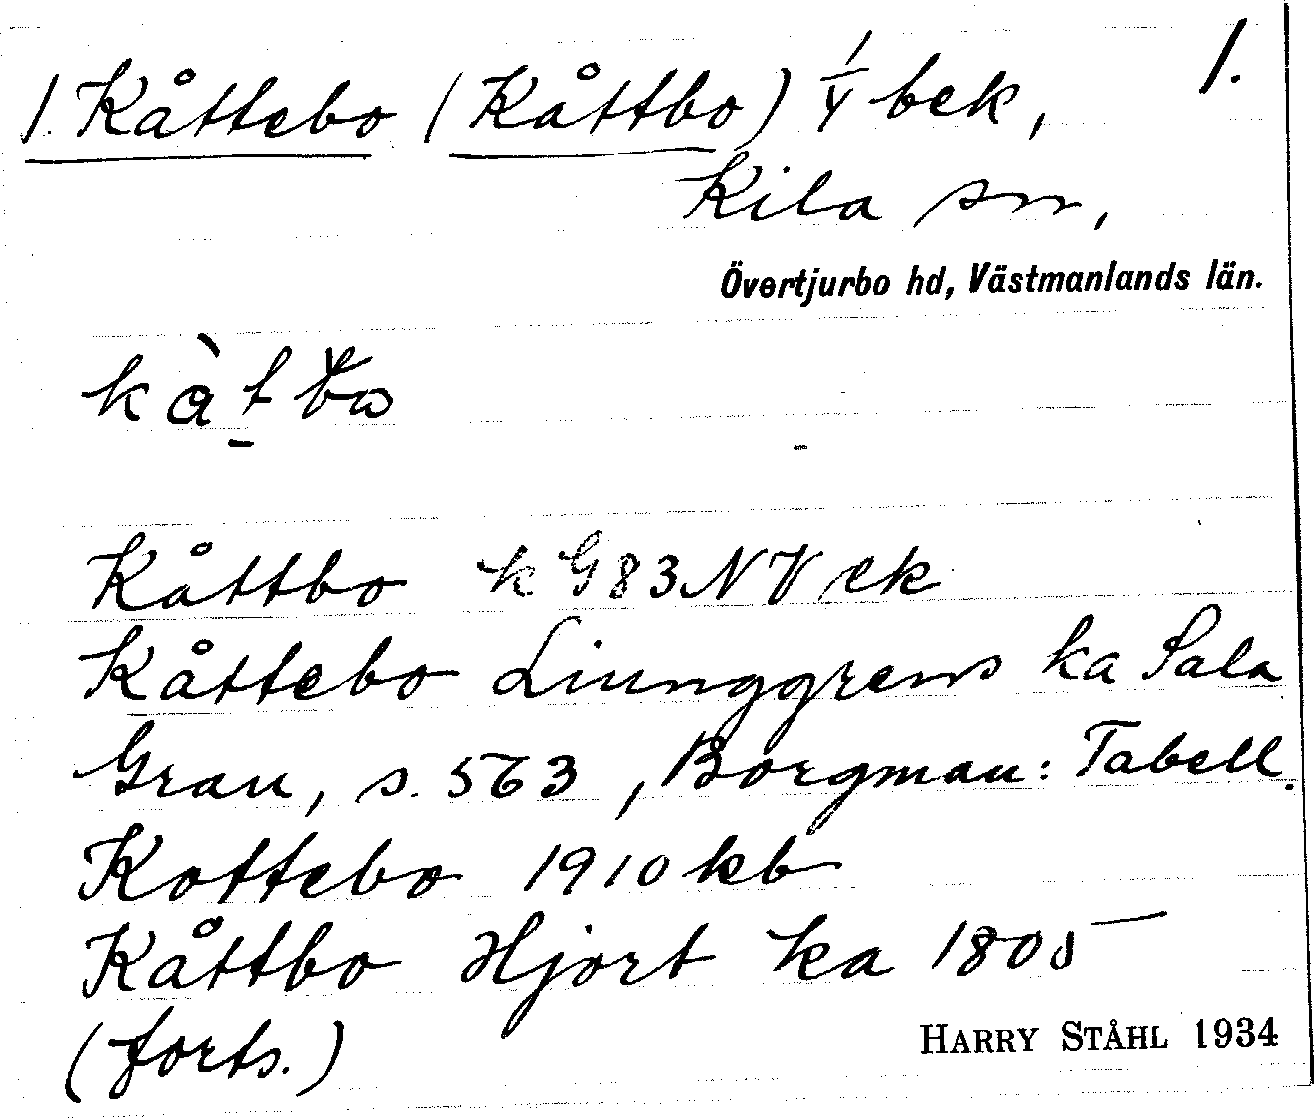 1.
1. Kåttebo (Kåttbo) 1/4 bek,
Kila sn,
Övertjurbo hd, Västmanlands län.
Kåttbo k G 83 NV ek
Kåttebo Liunggrens ka Sala
Grau, s. 563, Borgman: Tabell.
Kottebo 1910 kb
Kåttbo Hjort ka 1805
(forts.)
HARRY STÅHL 1934